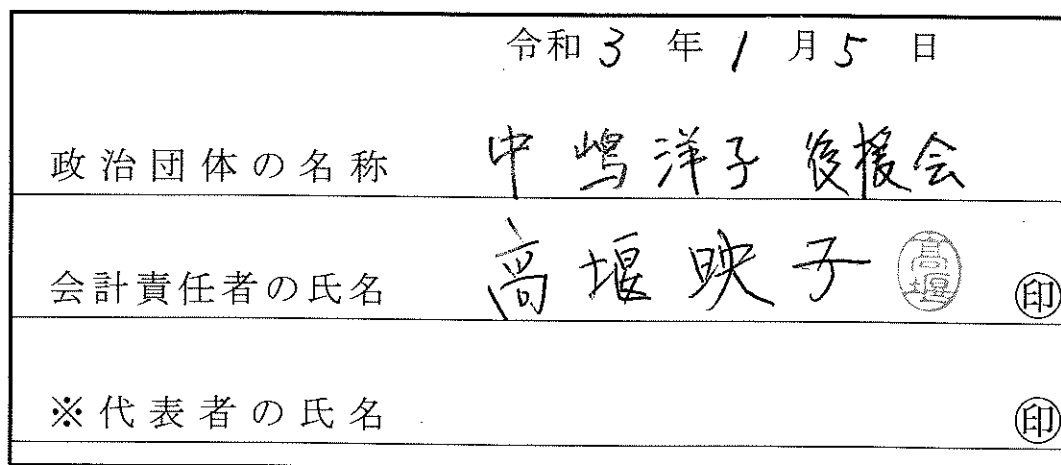 令和3年1月5日
政治団体の名称 中嶋洋子後援会
会計責任者の氏名 高堰映子 高堰 印
※代表者の氏名 印